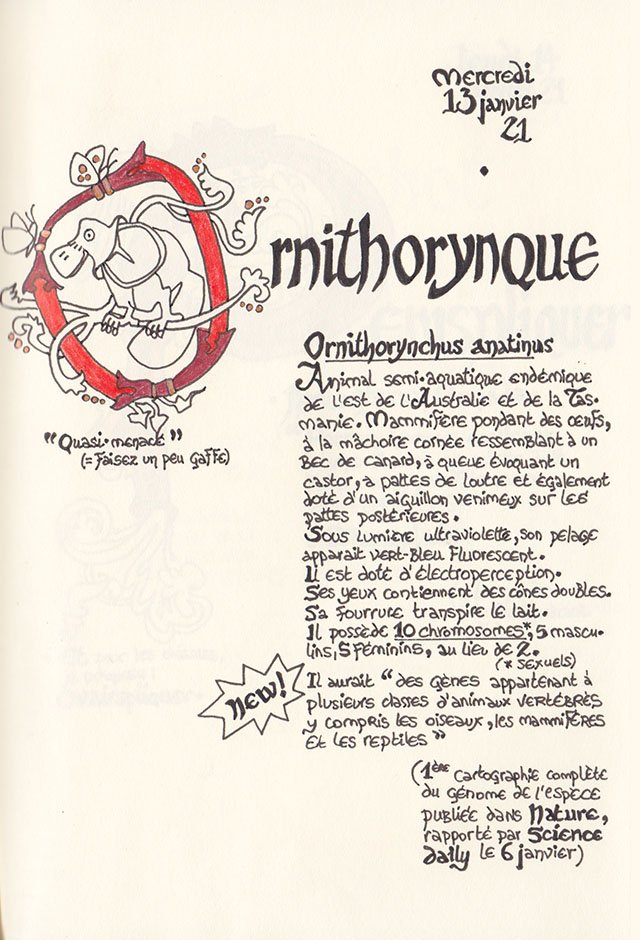 Mercredi
13 janvier
21
•
Ornithorynque
Ornithorynchus anatinus
Animal semi-aquatique endémique
de l'est de l'Australie et de la Tas-
manie. Mammifère pondant des œufs,
à la mâchoire cornée ressemblant à un
bec de canard, à queue évoquant un
castor, à pattes de loutre et également
doté d'un aiguillon venimeux sur les
pattes postérieures.
Sous lumière ultraviolette, son pelage
apparait vert-bleu fluorescent.
Il est doté d'électroperception.
Ses yeux contiennent des cônes doubles.
Sa fourrure transpire le lait.
Il possède 10 chromosomes*, 5 mascu-
lins, 5 féminins, au lieu de 2.
(* sexuels)
"Quasi-menacé"
(= Faisez un peu gaffe)
New!
Il aurait "des gènes appartenant à
plusieurs classes d'animaux vertébrés
y compris les oiseaux, les mammifères
et les reptiles"
(1ère cartographie complète
du génome de l'espèce
publiée dans Nature,
rapporté par Science
daily le 6 janvier)